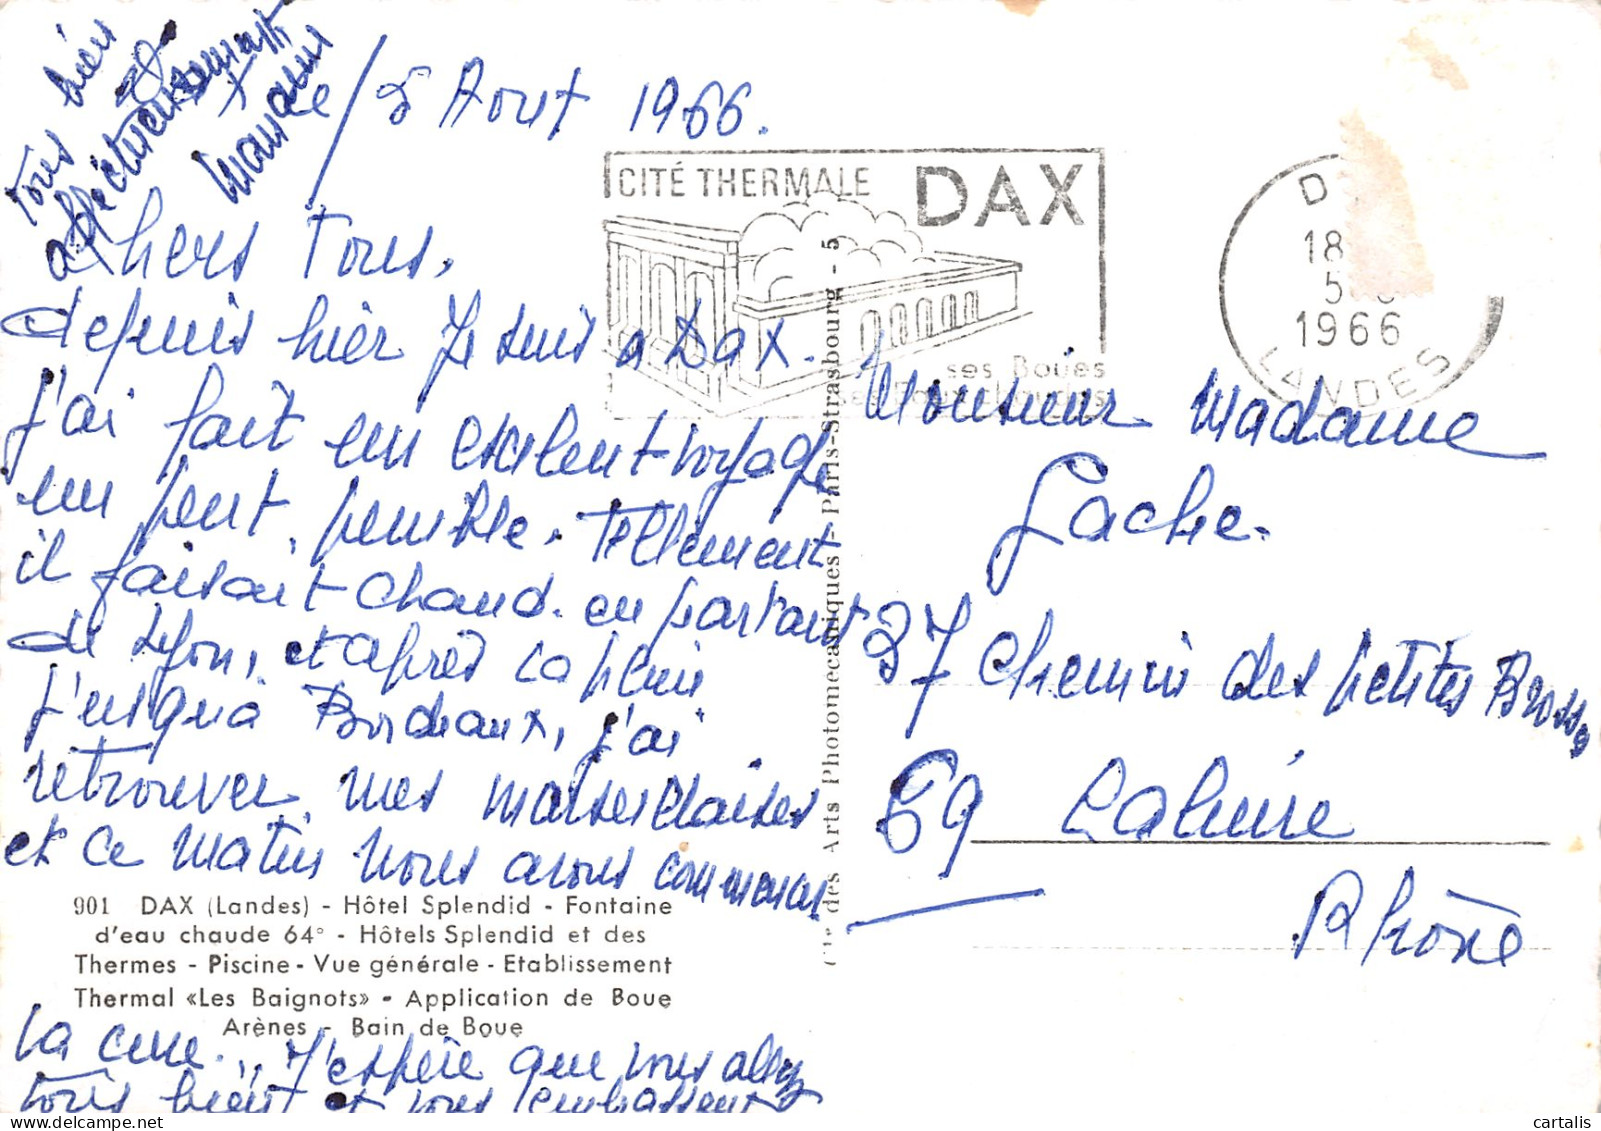 Dax le 5 Aout 1966.
chers Tous,
depuis hier Je suis a Dax.
J'ai fait un exelent voyage
un peut penible. Tellement
il faisait chaud. en partant
de Lyon, et après La pluie
J'usqu'à Bordeaux, j'ai
retrouver mes marseillaises
et ce matin nous avons commencer
La cure... J'espère que vous allez
tous bien et vous embrassent
tous bien
affectueusement
CITÉ THERMALE DAX
ses Boues
D
18
5
1966
LANDES
Monsieur Madame
Gache.
37 chemin des petites Brosses
69 Caluire
Rhône
des Arts Photomécaniques - Paris-Strasbourg - 5
901 DAX (Landes) - Hôtel Splendid - Fontaine
d'eau chaude 64° - Hôtels Splendid et des
Thermes - Piscine - Vue générale - Etablissement
Thermal «Les Baignots» - Application de Boue
Arènes - Bain de Boue
cartalis